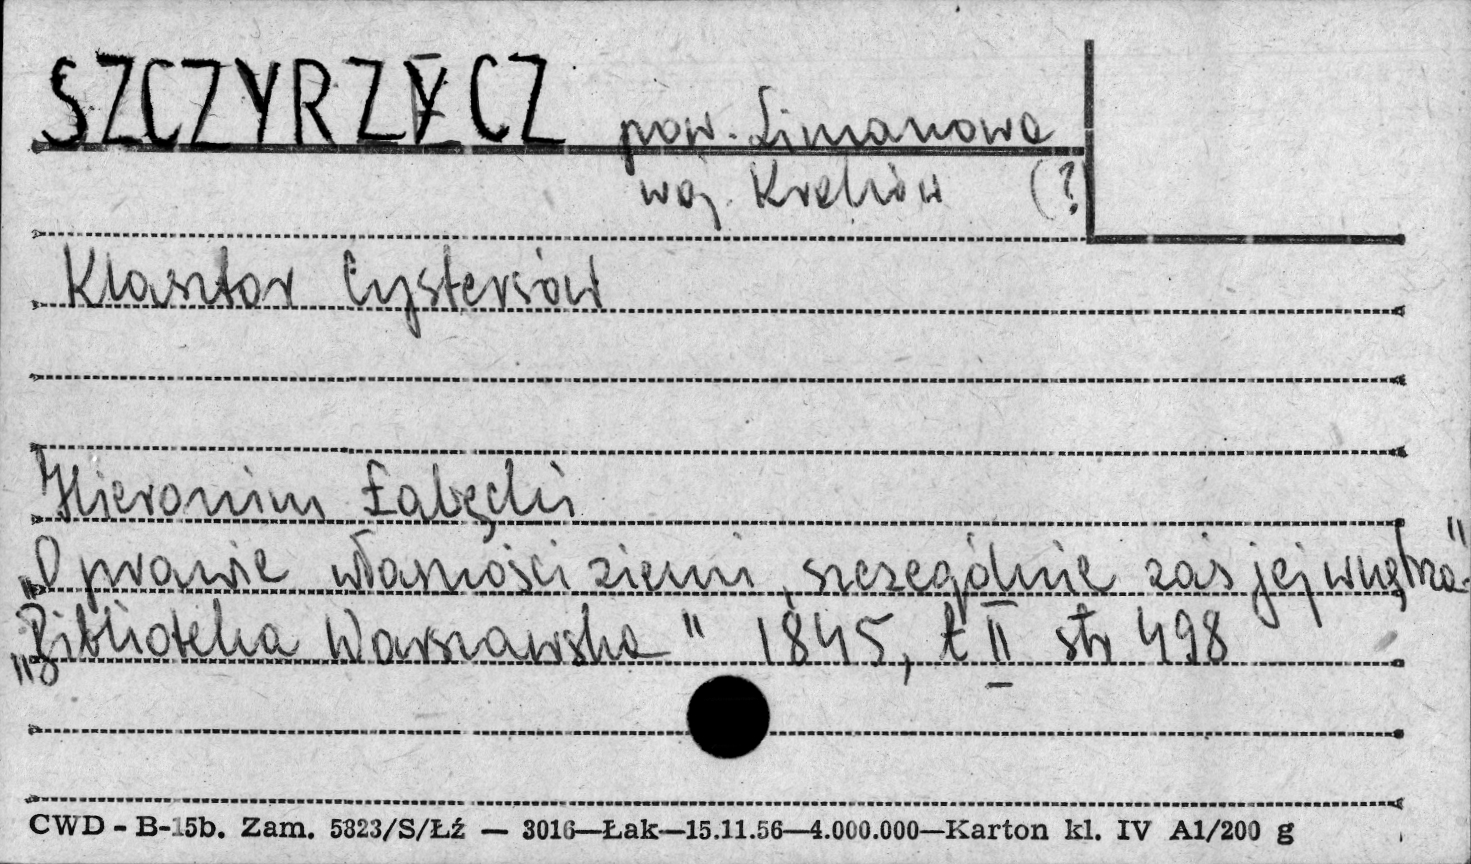 SZCZYRZYCZ pow. Limanowa
woj. Kraków (?)
Klasztor Cystersów
Hieronim Łabęcki
„O prawie własności ziemi, szczególnie zaś jej wnętrza"
„Biblioteka Warszawska" 1845, t II str 498
CWD - B-15b. Zam. 5823/S/Łź — 3016—Łak—15.11.56—4.000.000—Karton kl. IV A1/200 g